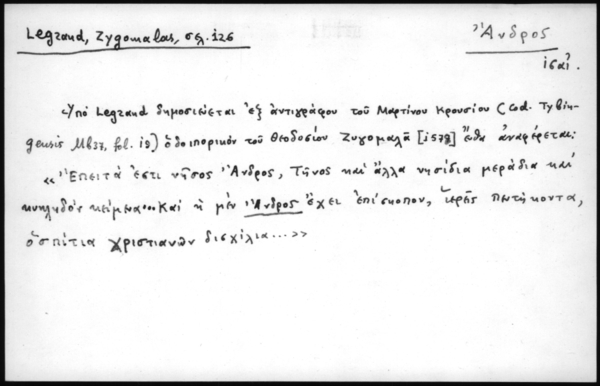 Legrand, Zygomalas, σελ. 126
Ἄνδρος
ις αἰ.
Ὑπὸ Legrand δημοσιεύεται ἐξ ἀντιγράφου τοῦ Μαρτίνου Κρουσίου (Cod. Tybin-
gensis Mb37, fol. ) ὁδοιπορικὸν τοῦ Θεοδοσίου Ζυγομαλᾶ [1578] ἔνθα ἀναφέρεται:
«Ἔπειτά ἐστι νῆσος Ἄνδρος, Τῆνος καὶ ἄλλα νησίδια μεράδια καὶ
κυκληδὸν κείμενα... Καὶ ἡ μὲν Ἄνδρος ἔχει ἐπίσκοπον, ἱερῆς πεντήκοντα,
ὁσπίτια χριστιανῶν δισχίλια...»